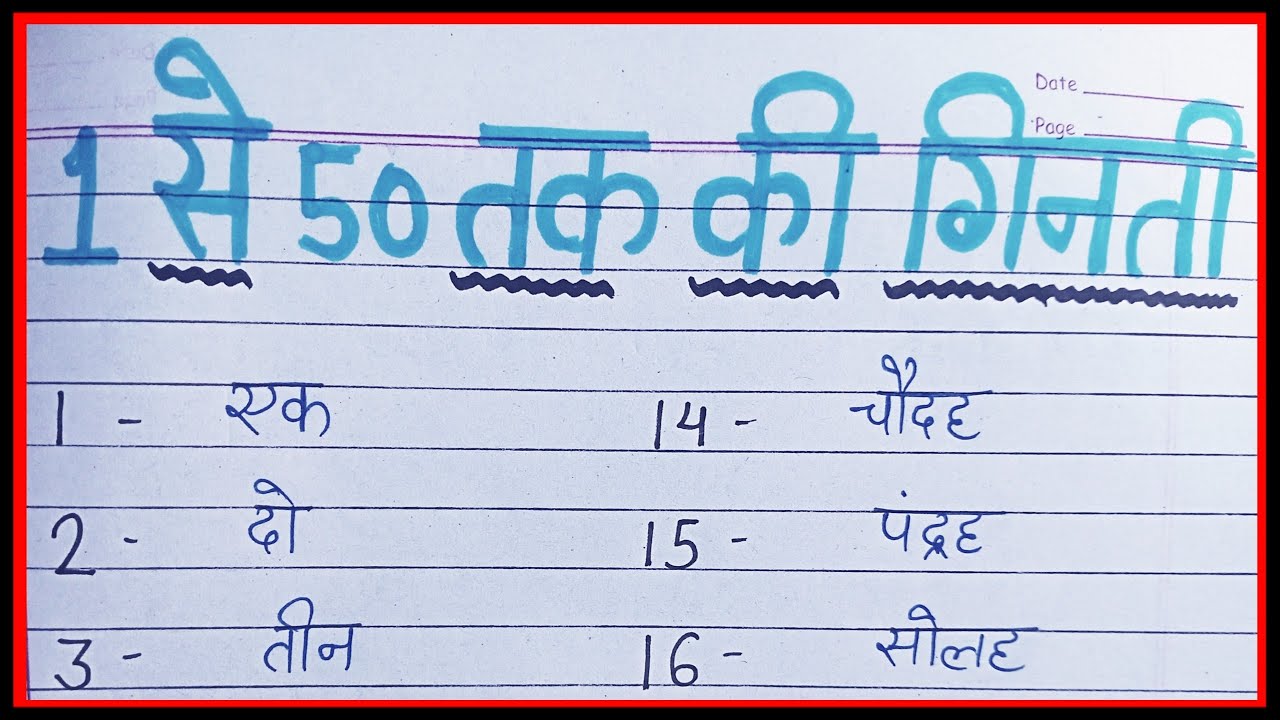 Date
Page
1 से 50 तक की गिनती
1 - एक 14 - चौदह
2 - दो 15 - पंद्रह
3 - तीन 16 - सोलह